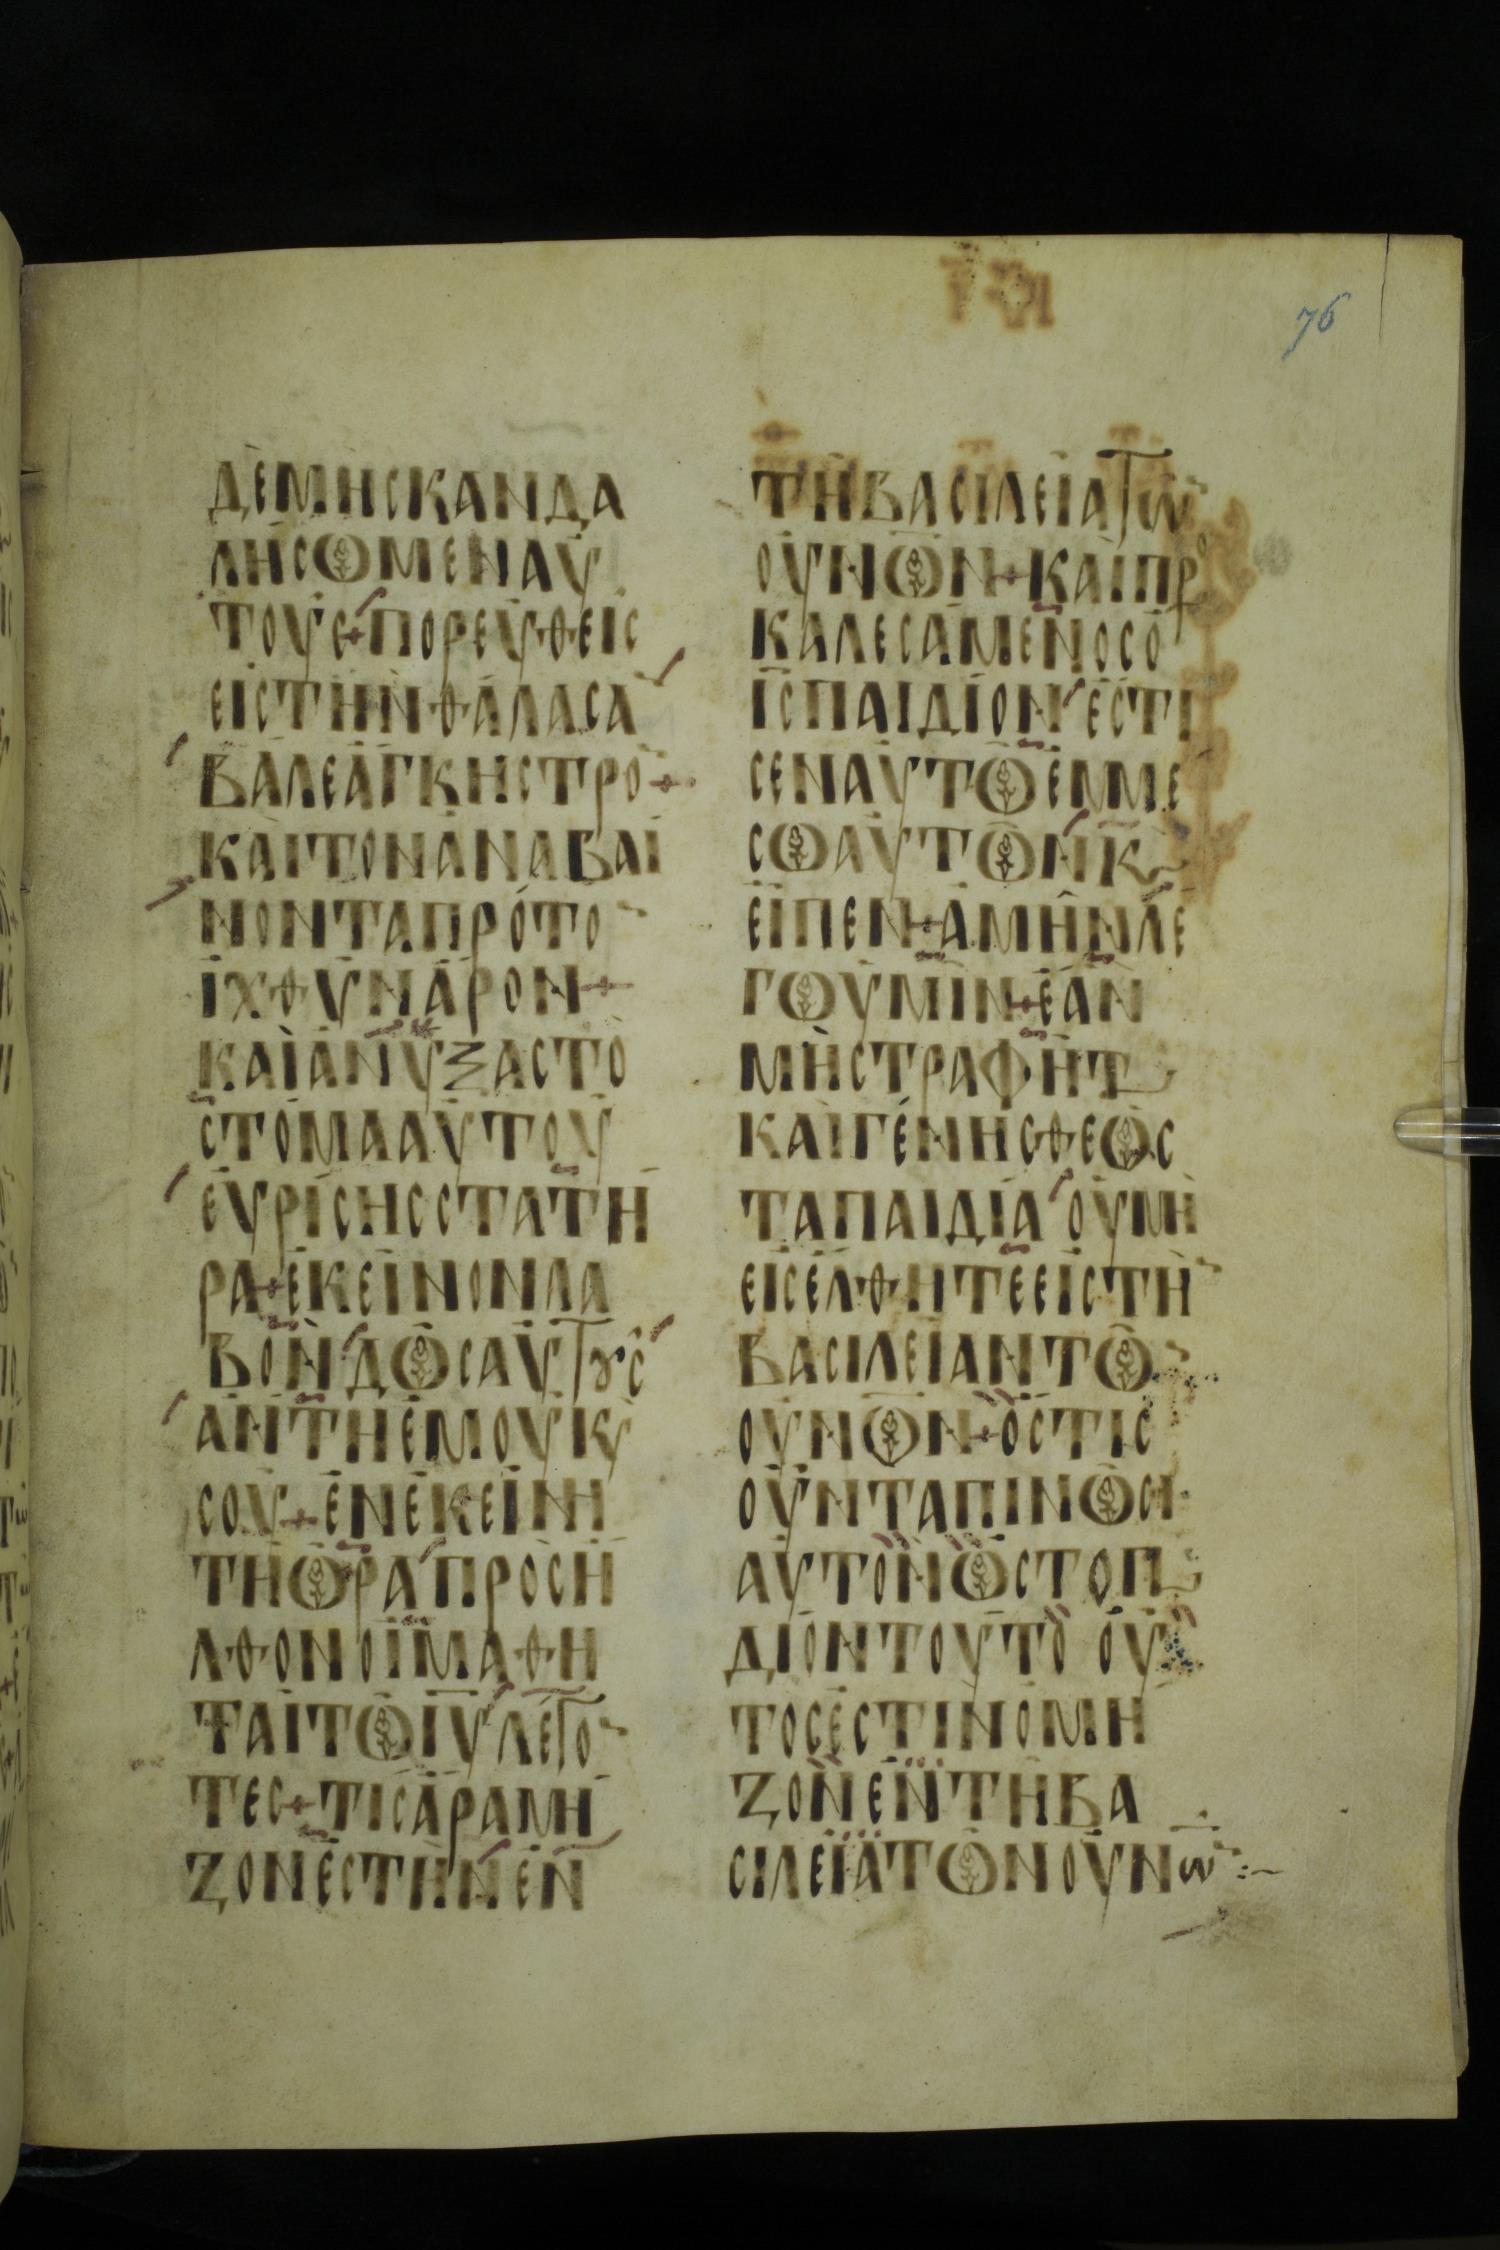 76
ΔΕΜΗСΚΑΝΔΑ
ΛΗСΩΜΕΝΑΥ
ΤΟΥС+ΠΟΡΕΥΘΕΙС
ΕΙСΤΗΝΘΑΛΑСΑ
ΒΑΛΕΑΓΚΗСΤΡΟ+
ΚΑΙΤΟΝΑΝΑΒΑΙ
ΝΟΝΤΑΠΡΟΤΟ
ΙΧΘΥΝΑΡΟΝ+
ΚΑΙΑΝΥΞΑСΤΟ
СΤΟΜΑΑΥΤΟΥ
ΕΥΡΙСΗССΤΑΤΗ
ΡΑ+ΕΚΕΙΝΟΝΛΑ
ΒΟΝΔΩСΑΥΤȣС
ΑΝΤΗΕΜΟΥΚΥ
СΟΥ+ΕΝΕΚΕΙΝΗ
ΤΗΩΡΑΠΡΟСΗ
ΛΘΟΝΟΙΜΑΘΗ
ΤΑΙΤΩΙΥΛΕΓΟ
ΤΕС+ΤΙСΑΡΑΜΗ
ΖΟΝΕСΤΗΝΕΝ
ΤΗΒΑСΙΛΕΙΑΤω
ΟΥΝΩΝ+ΚΑΙΠΡΟ
ΚΑΛΕСΑΜΕΝΟСΟ
ΙСΠΑΙΔΙΟΝΕСΤΙ
СΕΝΑΥΤΩΕΜΜΕ
СΩΑΥΤΩΝΚ
ΕΙΠΕΝ+ΑΜΗΝΛΕ
ΓΩΥΜΙΝ+ΕΑΝ
ΜΗСΤΡΑΦΗΤ
ΚΑΙΓΕΝΗСΘΕΩС
ΤΑΠΑΙΔΙΑΟΥΜΗ
ΕΙСΕΛΘΗΤΕΕΙСΤΗ
ΒΑСΙΛΕΙΑΝΤΩ
ΟΥΝΩΝ+ΟСΤΙС
ΟΥΝΤΑΠΙΝΩСΗ
ΑΥΤΟΝΩСΤΟΠ
ΔΙΟΝΤΟΥΤΟ ΟΥ
ΤΟСΕСΤΙΝΟΜΗ
ΖΟΝΕΝΤΗΒΑ
СΙΛΕΙΑΤΩΝΟΥΝω:~